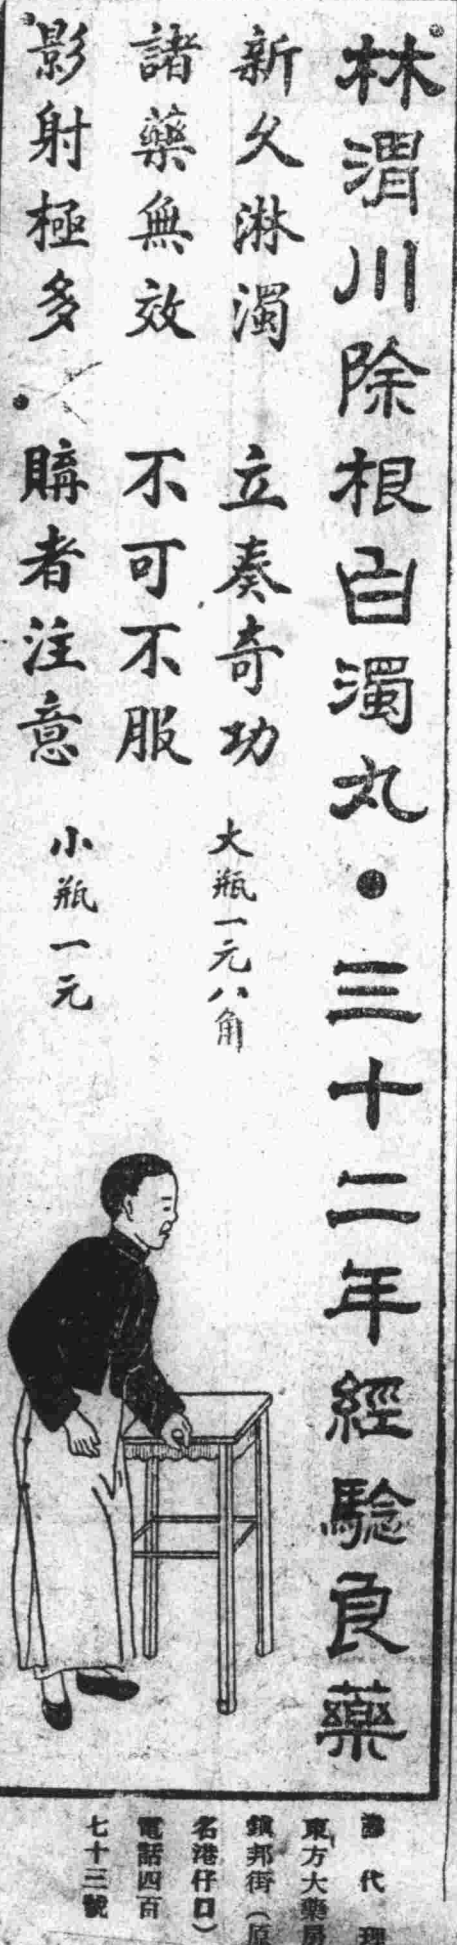 林渭川除根白濁丸●三十二年經驗良藥
新久淋濁 立奏奇功
大瓶一元八角
諸藥無效 不可不服
影射極多 購者注意
小瓶一元
代理
東方大藥房
鎮邦街（原
名港仔口）
電話四百
七十三號